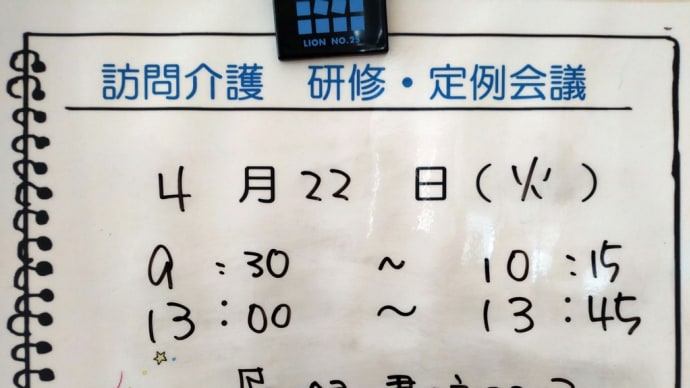 LION NO.25
訪問介護 研修・定例会議
4 月 22 日(火)
9:30 ~ 10:15
13:00 ~ 13:45